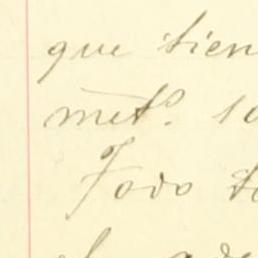 que tien
met⁰. 10
Todo to